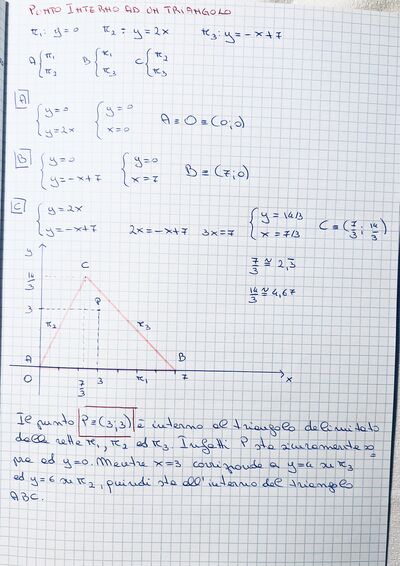 PUNTO INTERNO AD UN TRIANGOLO
r₁: y=0 r₂: y=2x r₃: y=-x+7
A { r₁ r₂ B { r₁ r₃ C { r₂ r₃
A { y=0 y=2x { y=0 x=0 A ≡ O ≡ (0;0)
B { y=0 y=-x+7 { y=0 x=7 B ≡ (7;0)
C { y=2x y=-x+7 2x=-x+7 3x=7 { y=14/3 x=7/3 C ≡ (7/3; 14/3)
7/3 ≅ 2,3
14/3 ≅ 4,67
y
14/3
C
3
P
r₂
r₃
A
B
O
7/3
3
r₁
7
x
Il punto P≡(3;3) è interno al triangolo delimitato
dalle rette r₁, r₂ ed r₃. Infatti P sta sicuramente so
pra ad y=0. Mentre x=3 corrisponde a y=4 su r₃
ed y=6 su r₂, quindi sta all'interno del triangolo
ABC.